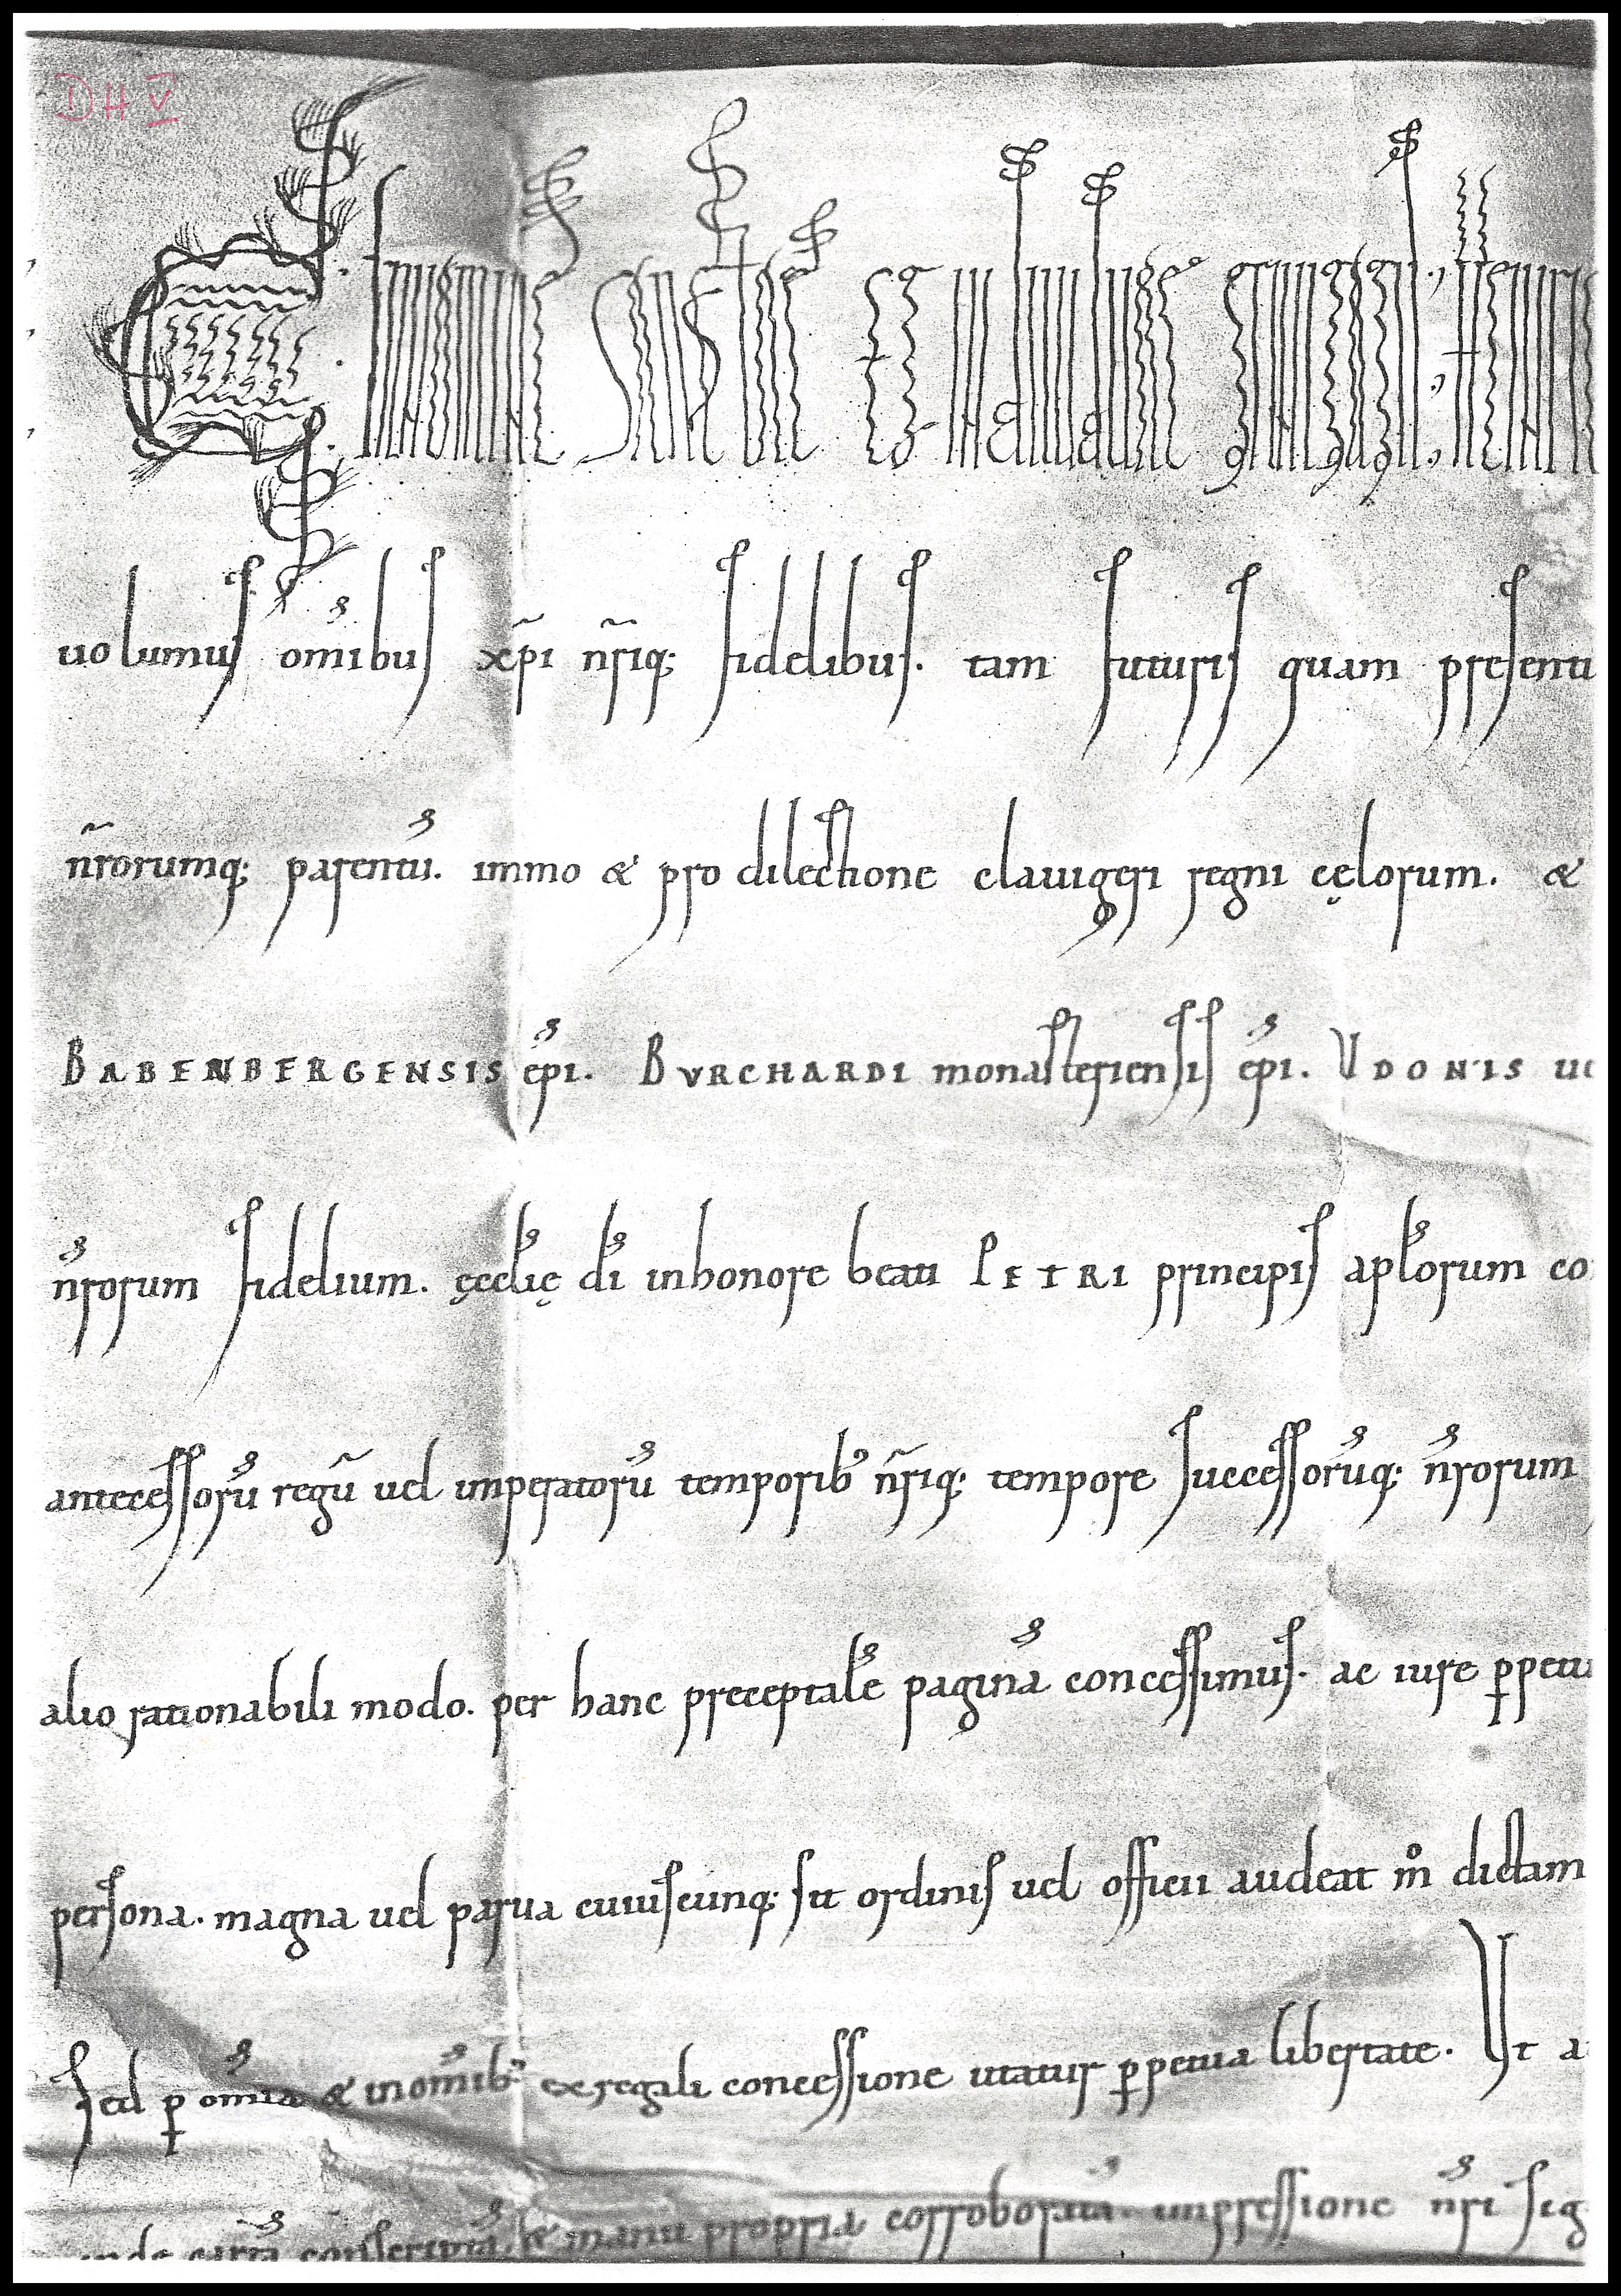 DH V
In nomine sanctę et indiuiduę
uolumus om̄ibus xp̄i n̄riq; fidelibus. tam futuris quam presenti
n̄rorumq; parentū. immo & pro dilectione clauigeri regni cęlorum. &
BABENBERGENSIS ep̄i. BVRCHARDI monasteriensis ep̄i. VDONIS
n̄rorum fidelium. ęcclię dī in honore beati PETRI principis apl̄orum co
antecessorū regū uel imperatorū temporib; n̄riq; tempore successorūq; n̄rorum
alio rationabili modo. per hanc preceptalē paginā concessimus. ac iure p̱petu
persona. magna uel parua cuiuscunq; sit ordinis uel officii audeat m̊ dictam
sed p̱ om̄ia & in om̄ib; ex regali concessione utatur p̱petua libertate. Vt a
inde cartā conscriptā & manu propria corroboratā. impressione n̄ri sig